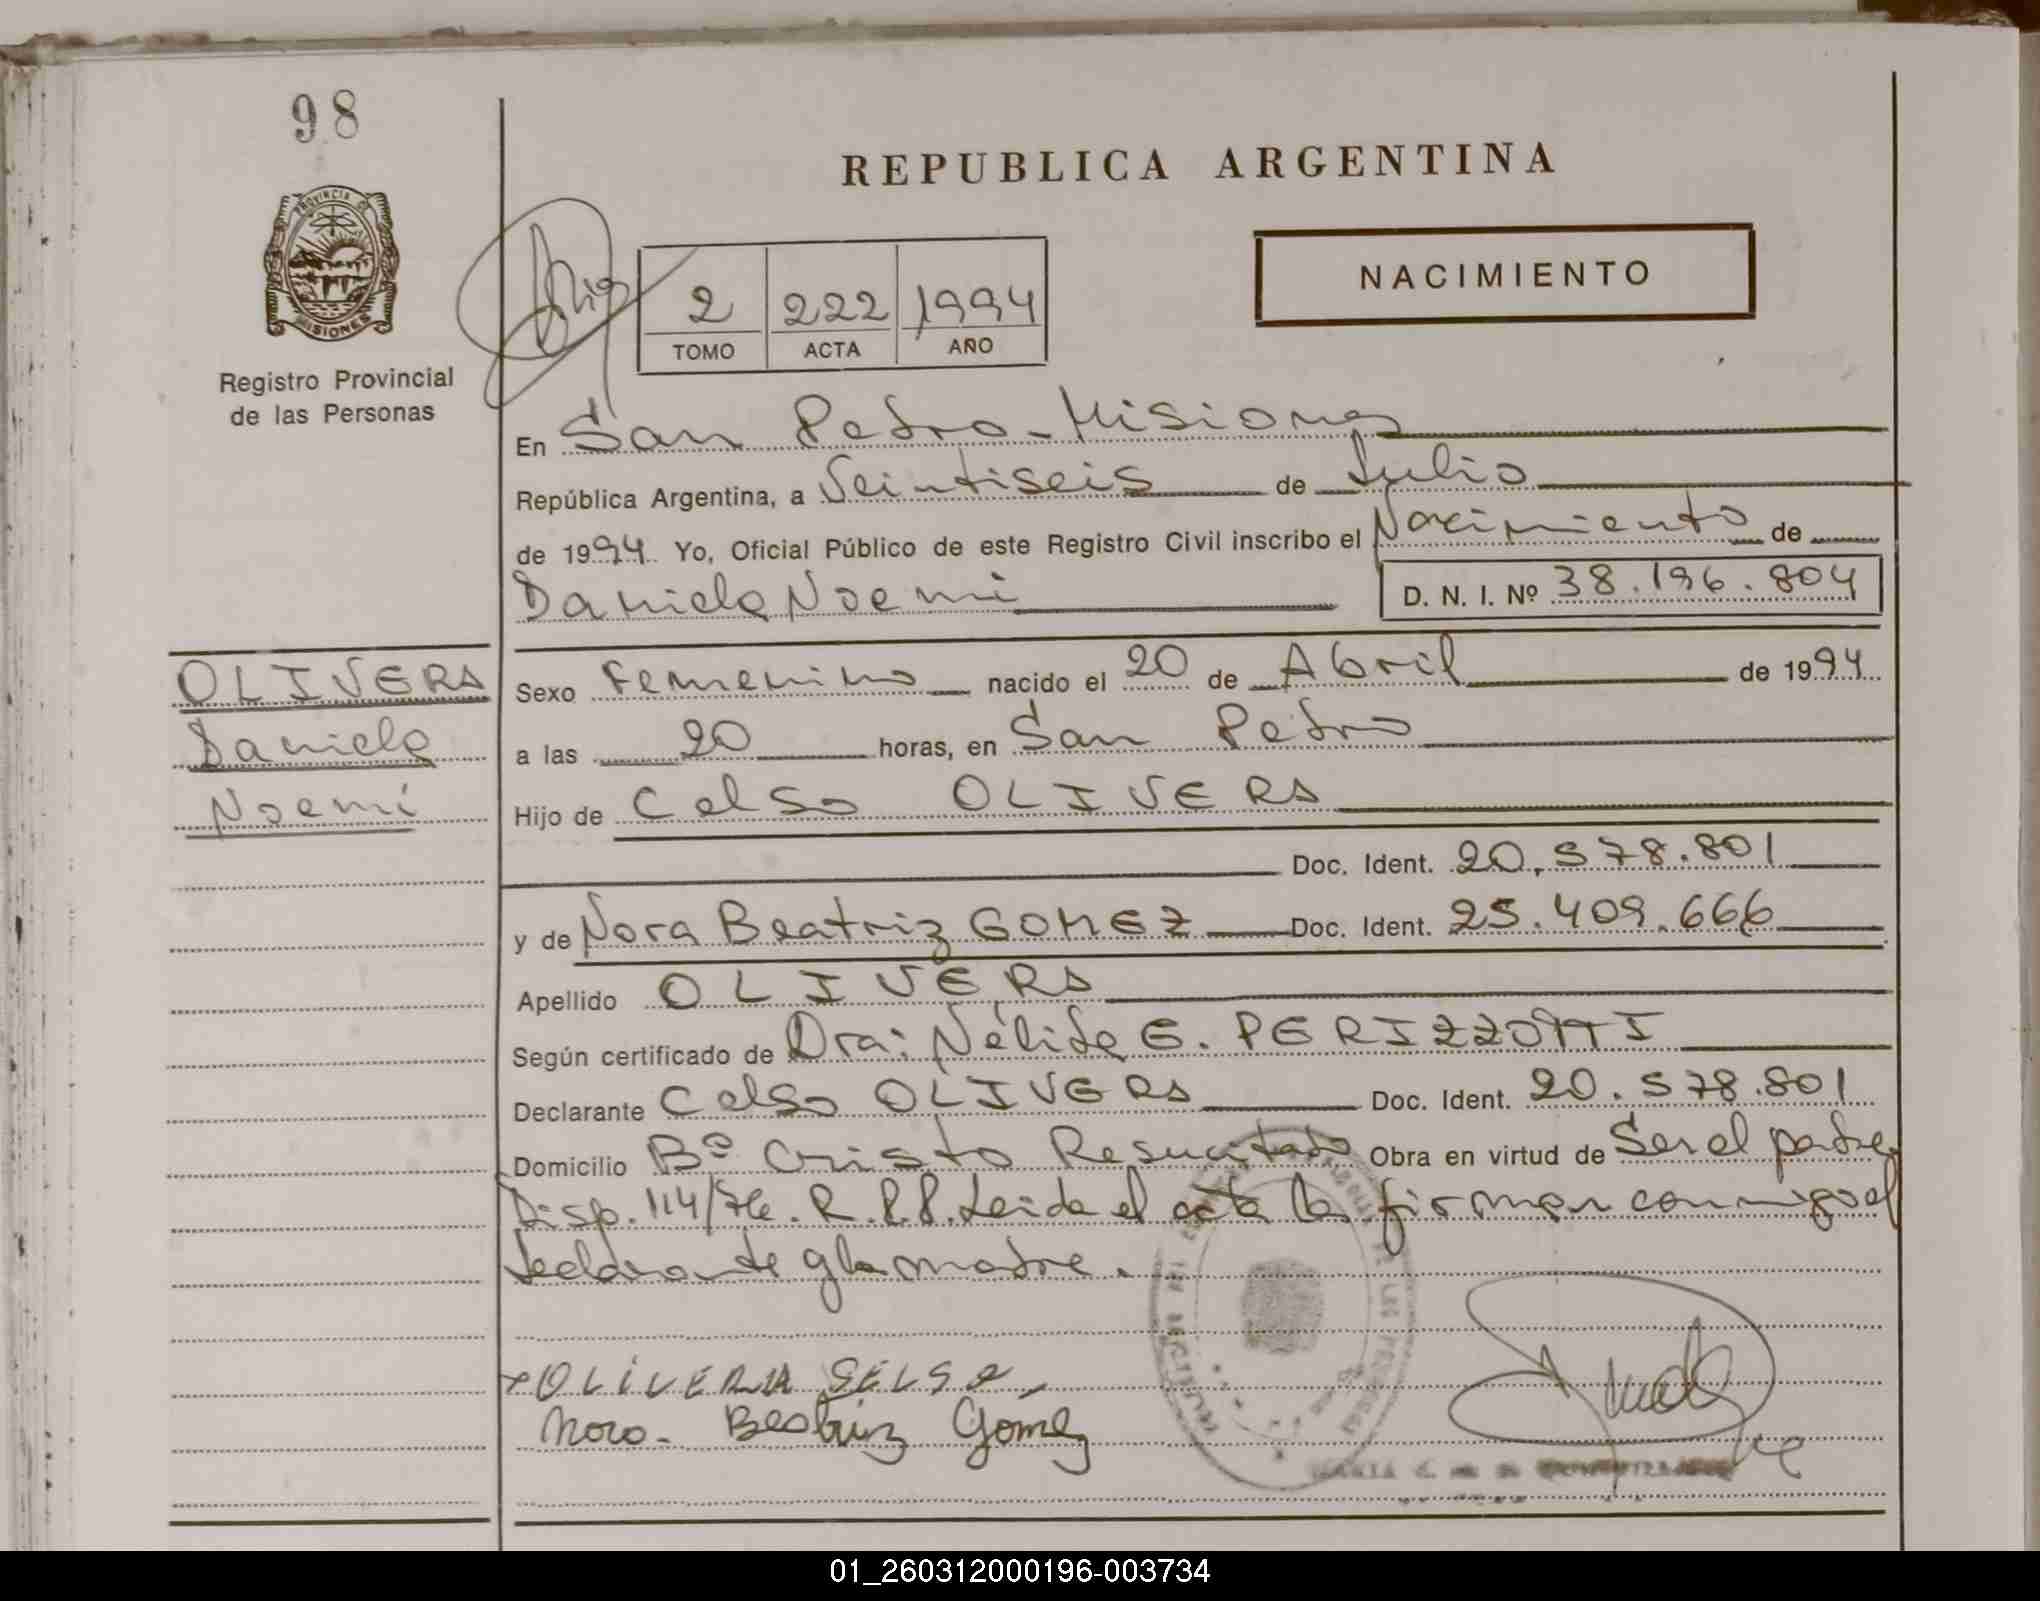 98
REPUBLICA ARGENTINA
NACIMIENTO
PROVINCIA DE
MISIONES
Registro Provincial
de las Personas
2 222 1994
TOMO ACTA AÑO
En San Pedro-Misiones
República Argentina, a Veintiseis de Julio
de 1994 Yo, Oficial Público de este Registro Civil inscribo el Nacimiento de
Daniela Noemi D. N. I. Nº 38.196.804
OLIVERA
Daniela
Noemí
Sexo Femenino nacido el 20 de Abril de 1994
a las 20 horas, en San Pedro
Hijo de Celso OLIVERA
Doc. Ident. 20.578.801
y de Nora Beatriz GOMEZ Doc. Ident. 25.409.666
Apellido OLIVERA
Según certificado de Dra: Nélida E. PERIZZOTTI
Declarante Celso OLIVERA Doc. Ident. 20.578.801
Domicilio Bº Cristo Resucitado Obra en virtud de Ser el padre
Disp. 114/76. R.P.P. Leida el acta la firman conmigo el
declarante y la madre.
OLIVERA SELSO
Nora. Beatriz Gomez
01_260312000196-003734